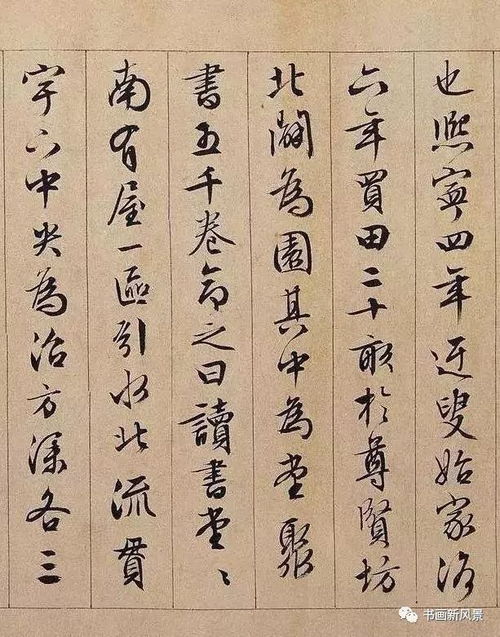 也熙寧四年迂叟始家洛
六年買田二十畝於尊賢坊
北闢為園其中為堂聚
書五千卷命之曰讀書堂〻
南有屋一區引水北流貫
宇下中央為沼方深各三
书画新风景